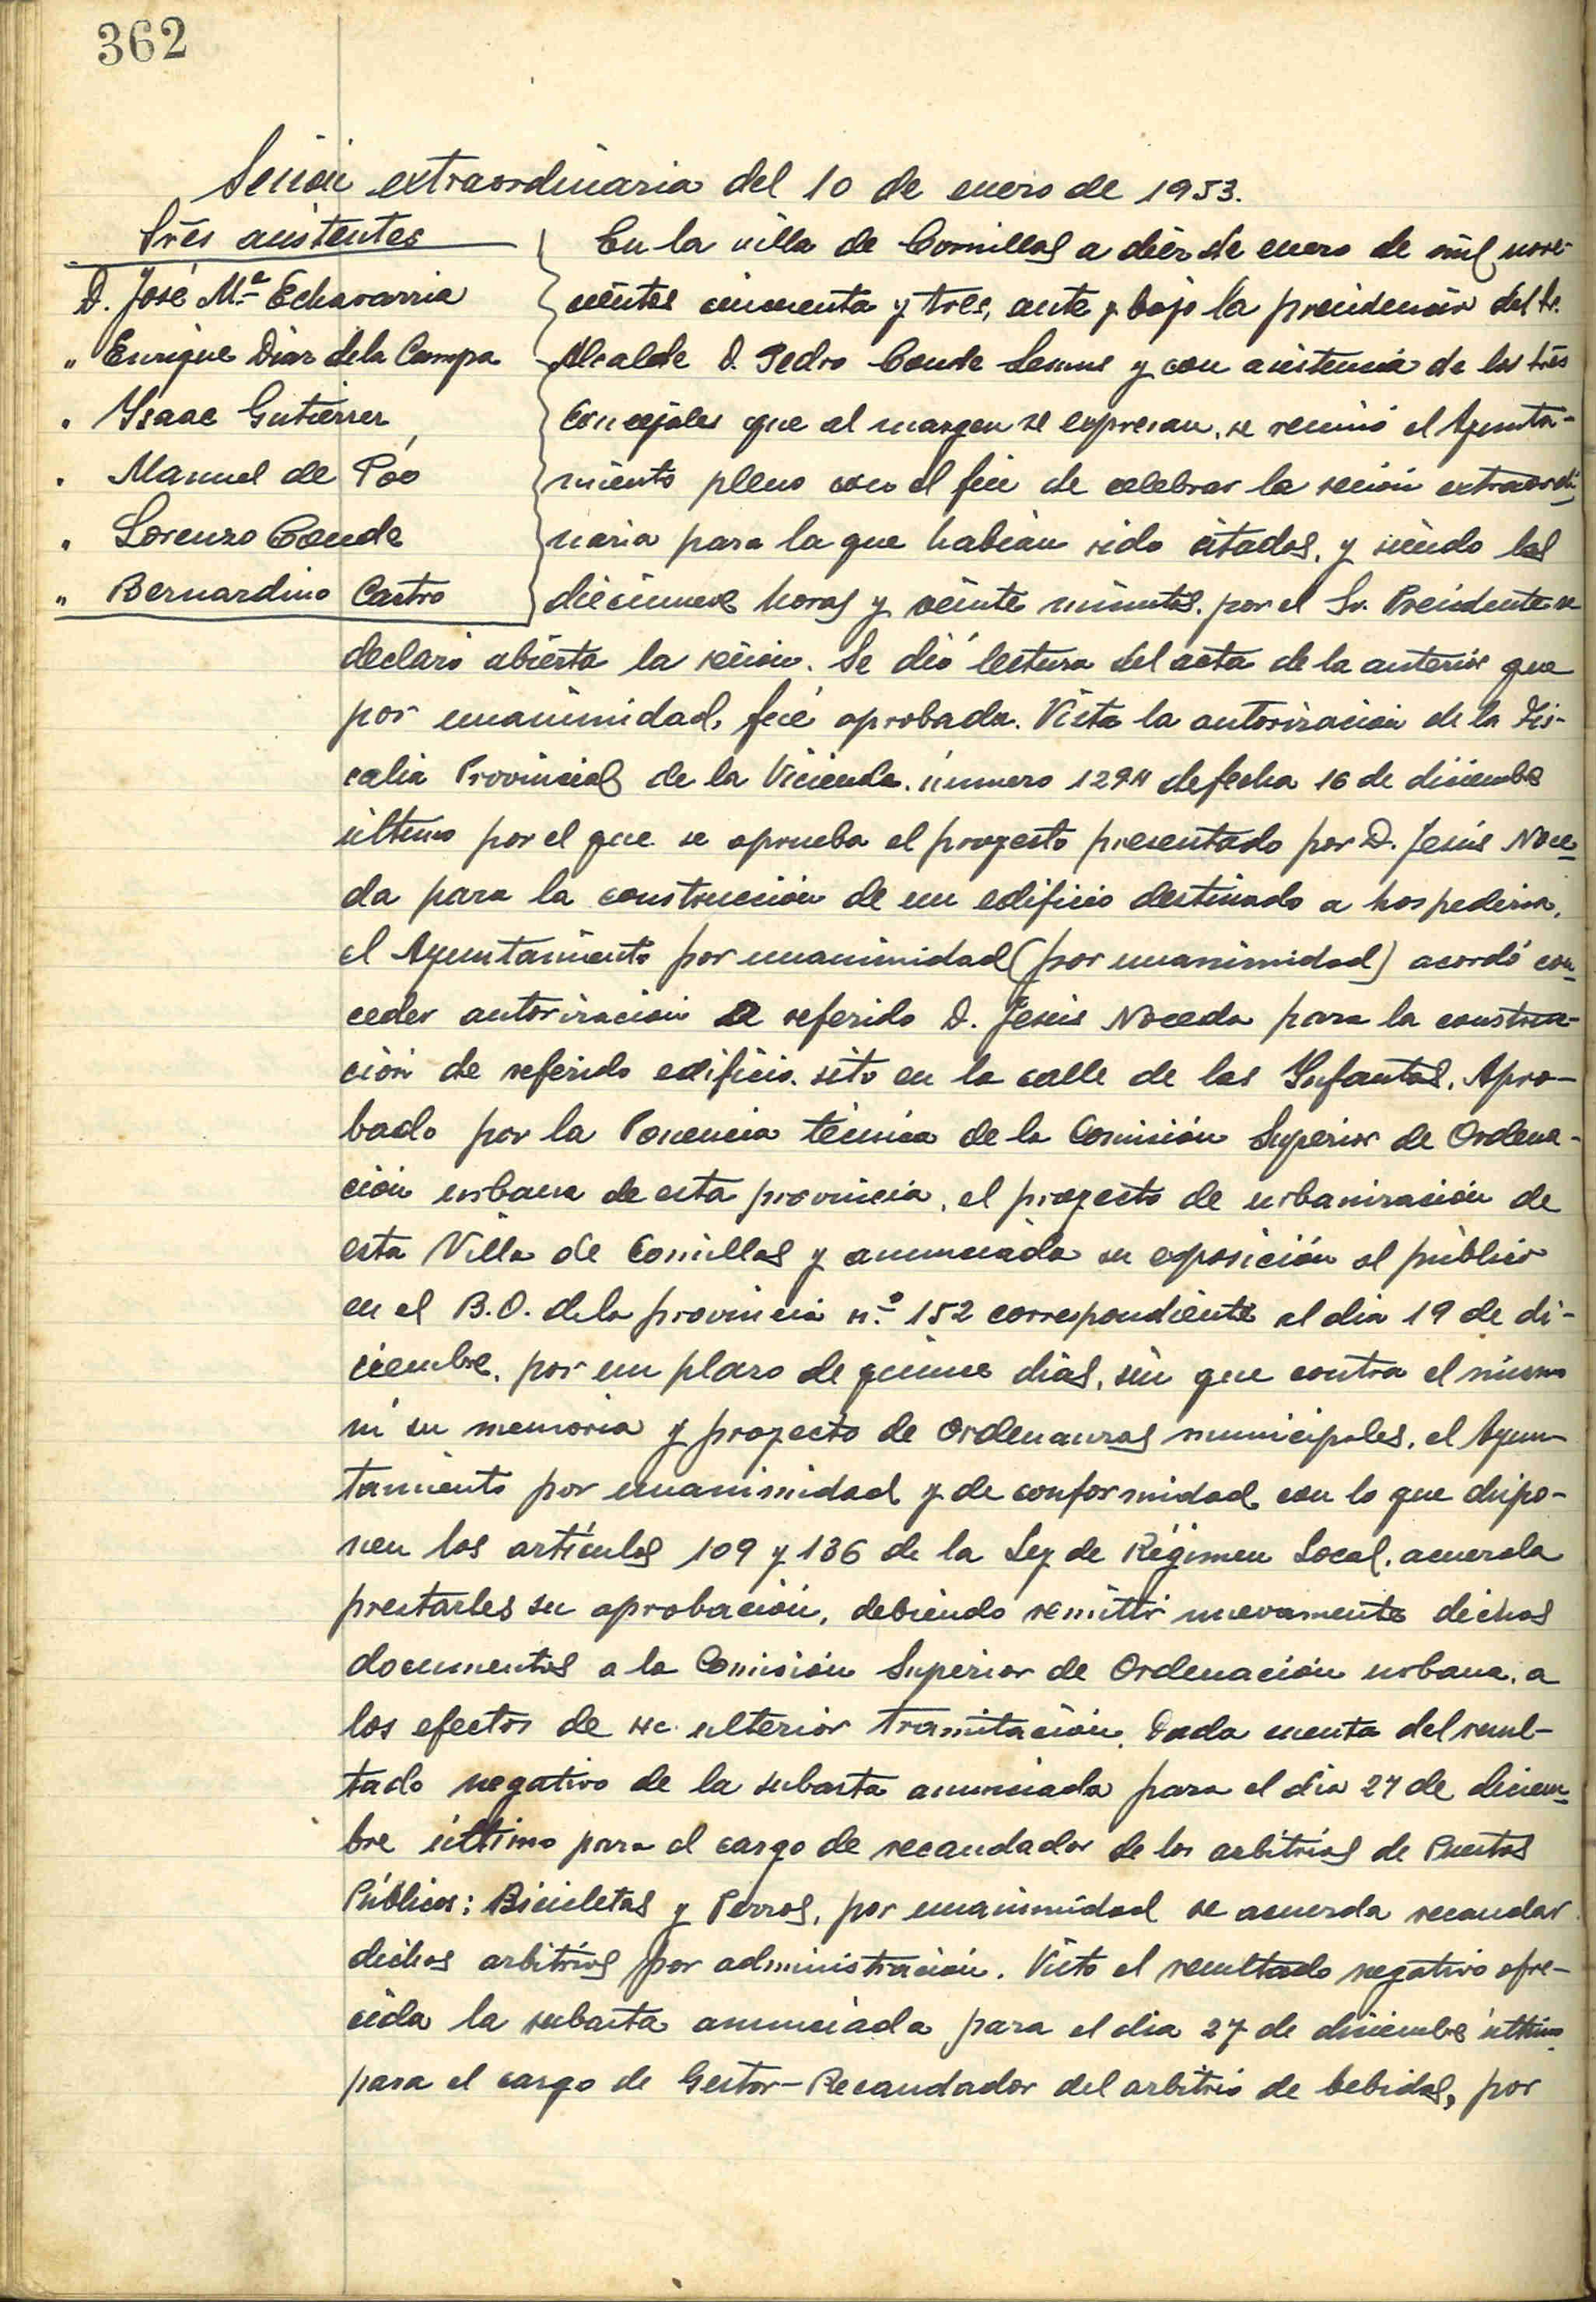 362
Sesión extraordinaria del 10 de enero de 1953.
Sres asistentes
D. José Mª Echavarria
" Enrique Diaz de la Campa
" Ysaac Gutierrez
" Manuel de Póo
" Lorenzo Conde
" Bernardino Castro
En la villa de Comillas a diez de enero de mil nove-
cientos cincuenta y tres, ante y bajo la presidencia del Sr.
Alcalde D. Pedro Conde y con asistencia de los Srs
Concejales que al margen se expresan, se reunió el Ayunta-
miento pleno con el fin de celebrar la sesión extraordi-
naria para la que habian sido citados, y siendo las
diecinueve horas y veinte minutos, por el Sr. Presidente se
declaró abierta la sesión. Se dió lectura del acta de la anterior que
por unanimidad, fué aprobada. Vista la autorización de la Fis-
calia Provincial de la Vivienda, número 1294 de fecha 16 de diciembre
último por el que se aprueba el proyecto presentado por D. Jesús Noce-
da para la construcción de un edificio destinado a hospederia,
el Ayuntamiento por unanimidad (por unanimidad) acordó con-
ceder autorización a referido D. Jesús Noceda para la construc-
ción de referido edificio, sito en la calle de las Ynfantas. Apro-
bado por la Ponencia técnica de la Comisión Superior de Ordena-
ción urbana de esta provincia, el proyecto de urbanización de
esta Villa de Comillas y anunciada su exposición al público
en el B.O. de la provincia n.º 152 correspondiente al dia 19 de di-
ciembre, por un plazo de quince dias, sin que contra el mismo
ni su memoria y proyecto de Ordenanzas municipales, el Ayun-
tamiento por unanimidad y de conformidad con lo que dispo-
nen los artículos 109 y 136 de la Ley de Régimen Local, acuerda
prestarles su aprobación, debiendo remitir nuevamente dichos
documentos a la Comisión Superior de Ordenación urbana, a
los efectos de su ulterior tramitación. Dada cuenta del resul-
tado negativo de la subasta anunciada para el dia 27 de diciem-
bre último para el cargo de recaudador de los arbitrios de Puestos
Públicos; Bicicletas y Perros, por unanimidad se acuerda recaudar
dichos arbitrios por administración. Visto el resultado negativo ofre-
cida la subasta anunciada para el dia 27 de diciembre último
para el cargo de Gestor-Recaudador del arbitrio de bebidas, por